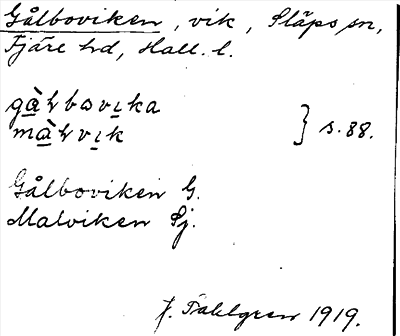 Gålboviken, vik, Släps sn,
Fjäre hd, Hall. l.
gàɫbovika
màɫvik } s. 88.
Gålboviken G.
Malviken Sj.
J. Sahlgren 1919.